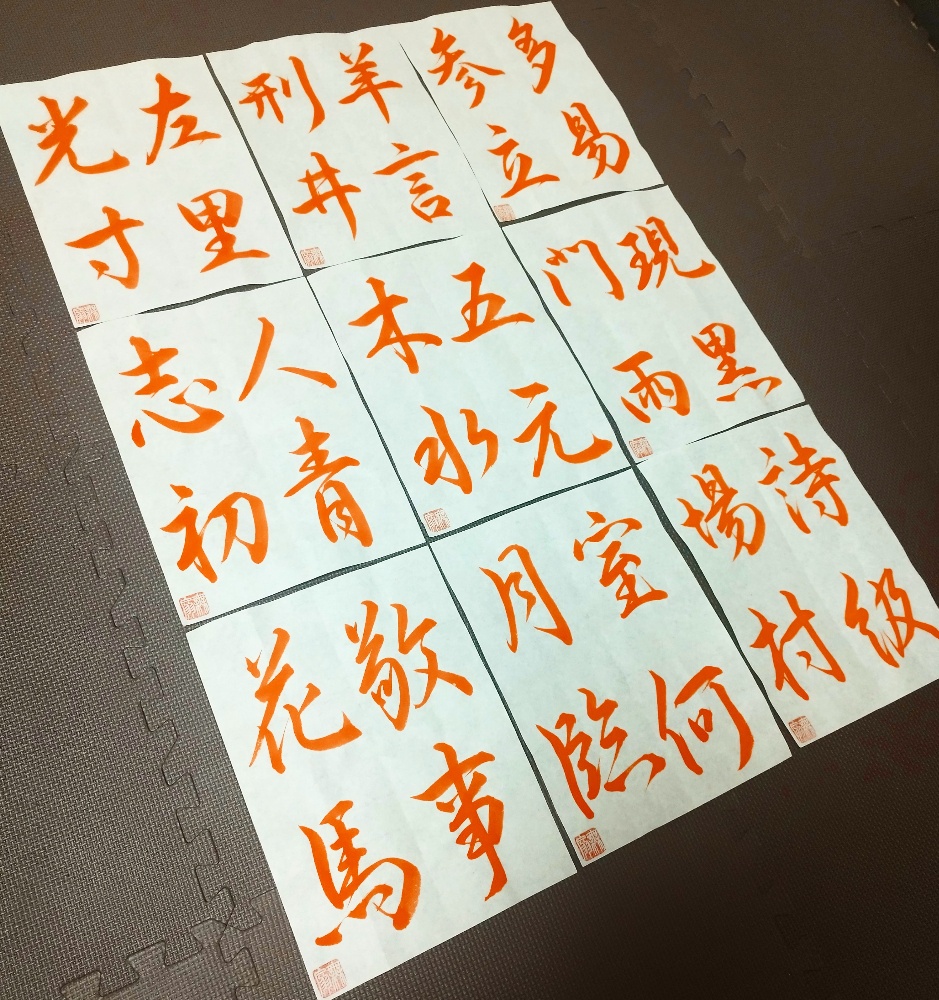 多易
参立
羊言
刑井
左里
光寸
現黒
門雨
五元
木水
人青
志初
詩級
場村
室何
月臨
敬事
花馬